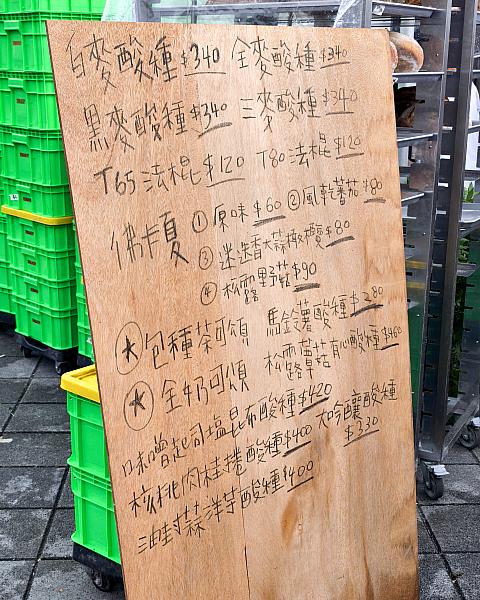 白麥酸種 $340 全麥酸種 $340
黑麥酸種 $340 三麥酸種 $340
T65 法棍 $120 T80 法棍 $120
佛卡夏 ① 原味 $60 ② 風乾蕃茄 $80
③ 迷迭香大蒜橄欖 $80
④ 松露野菇 $90
★ 包種茶可頌 馬鈴薯酸種 $280
★ 全奶可頌 松露蘑菇有心酸種 $460
味噌起司塩昆布酸種 $420
核桃肉桂捲酸種 $400 酒釀酸種 $330
油封蒜洋芋酸種 $400